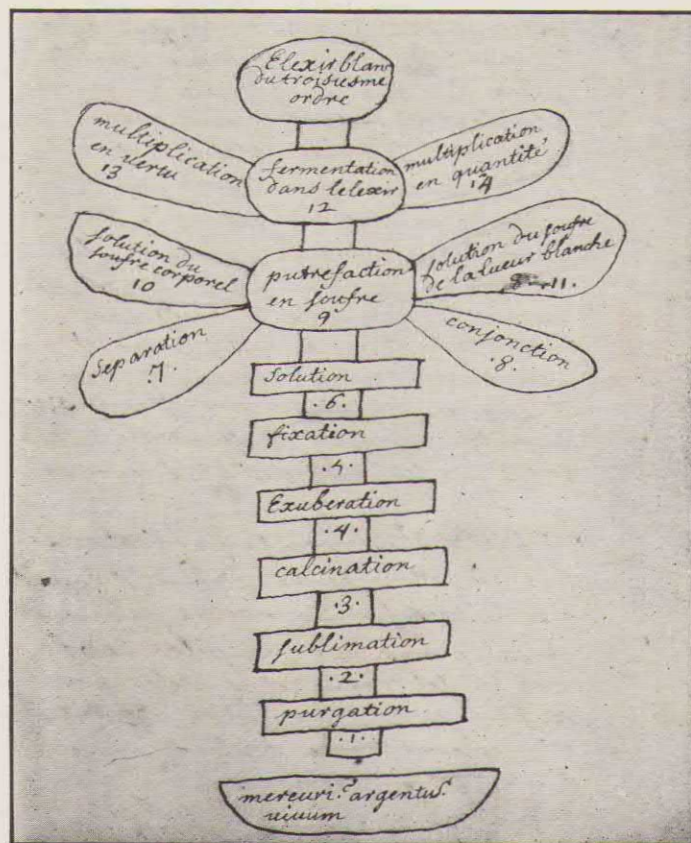 Elexir blan
du troisiesme
ordre
multiplication
en vertu
13
fermentation
dans lelexir
12
multiplication
en quantité
14
solution du
soufre corporel
10
putrefaction
en soufre
9
solution du soufre
de la lueur blanche
11.
separation
.7.
conjonction
.8.
solution
.6.
fixation
.5.
Exuberation
.4.
calcination
.3.
sublimation
.2.
purgation
.1.
mercuri9 argentu9
vivum